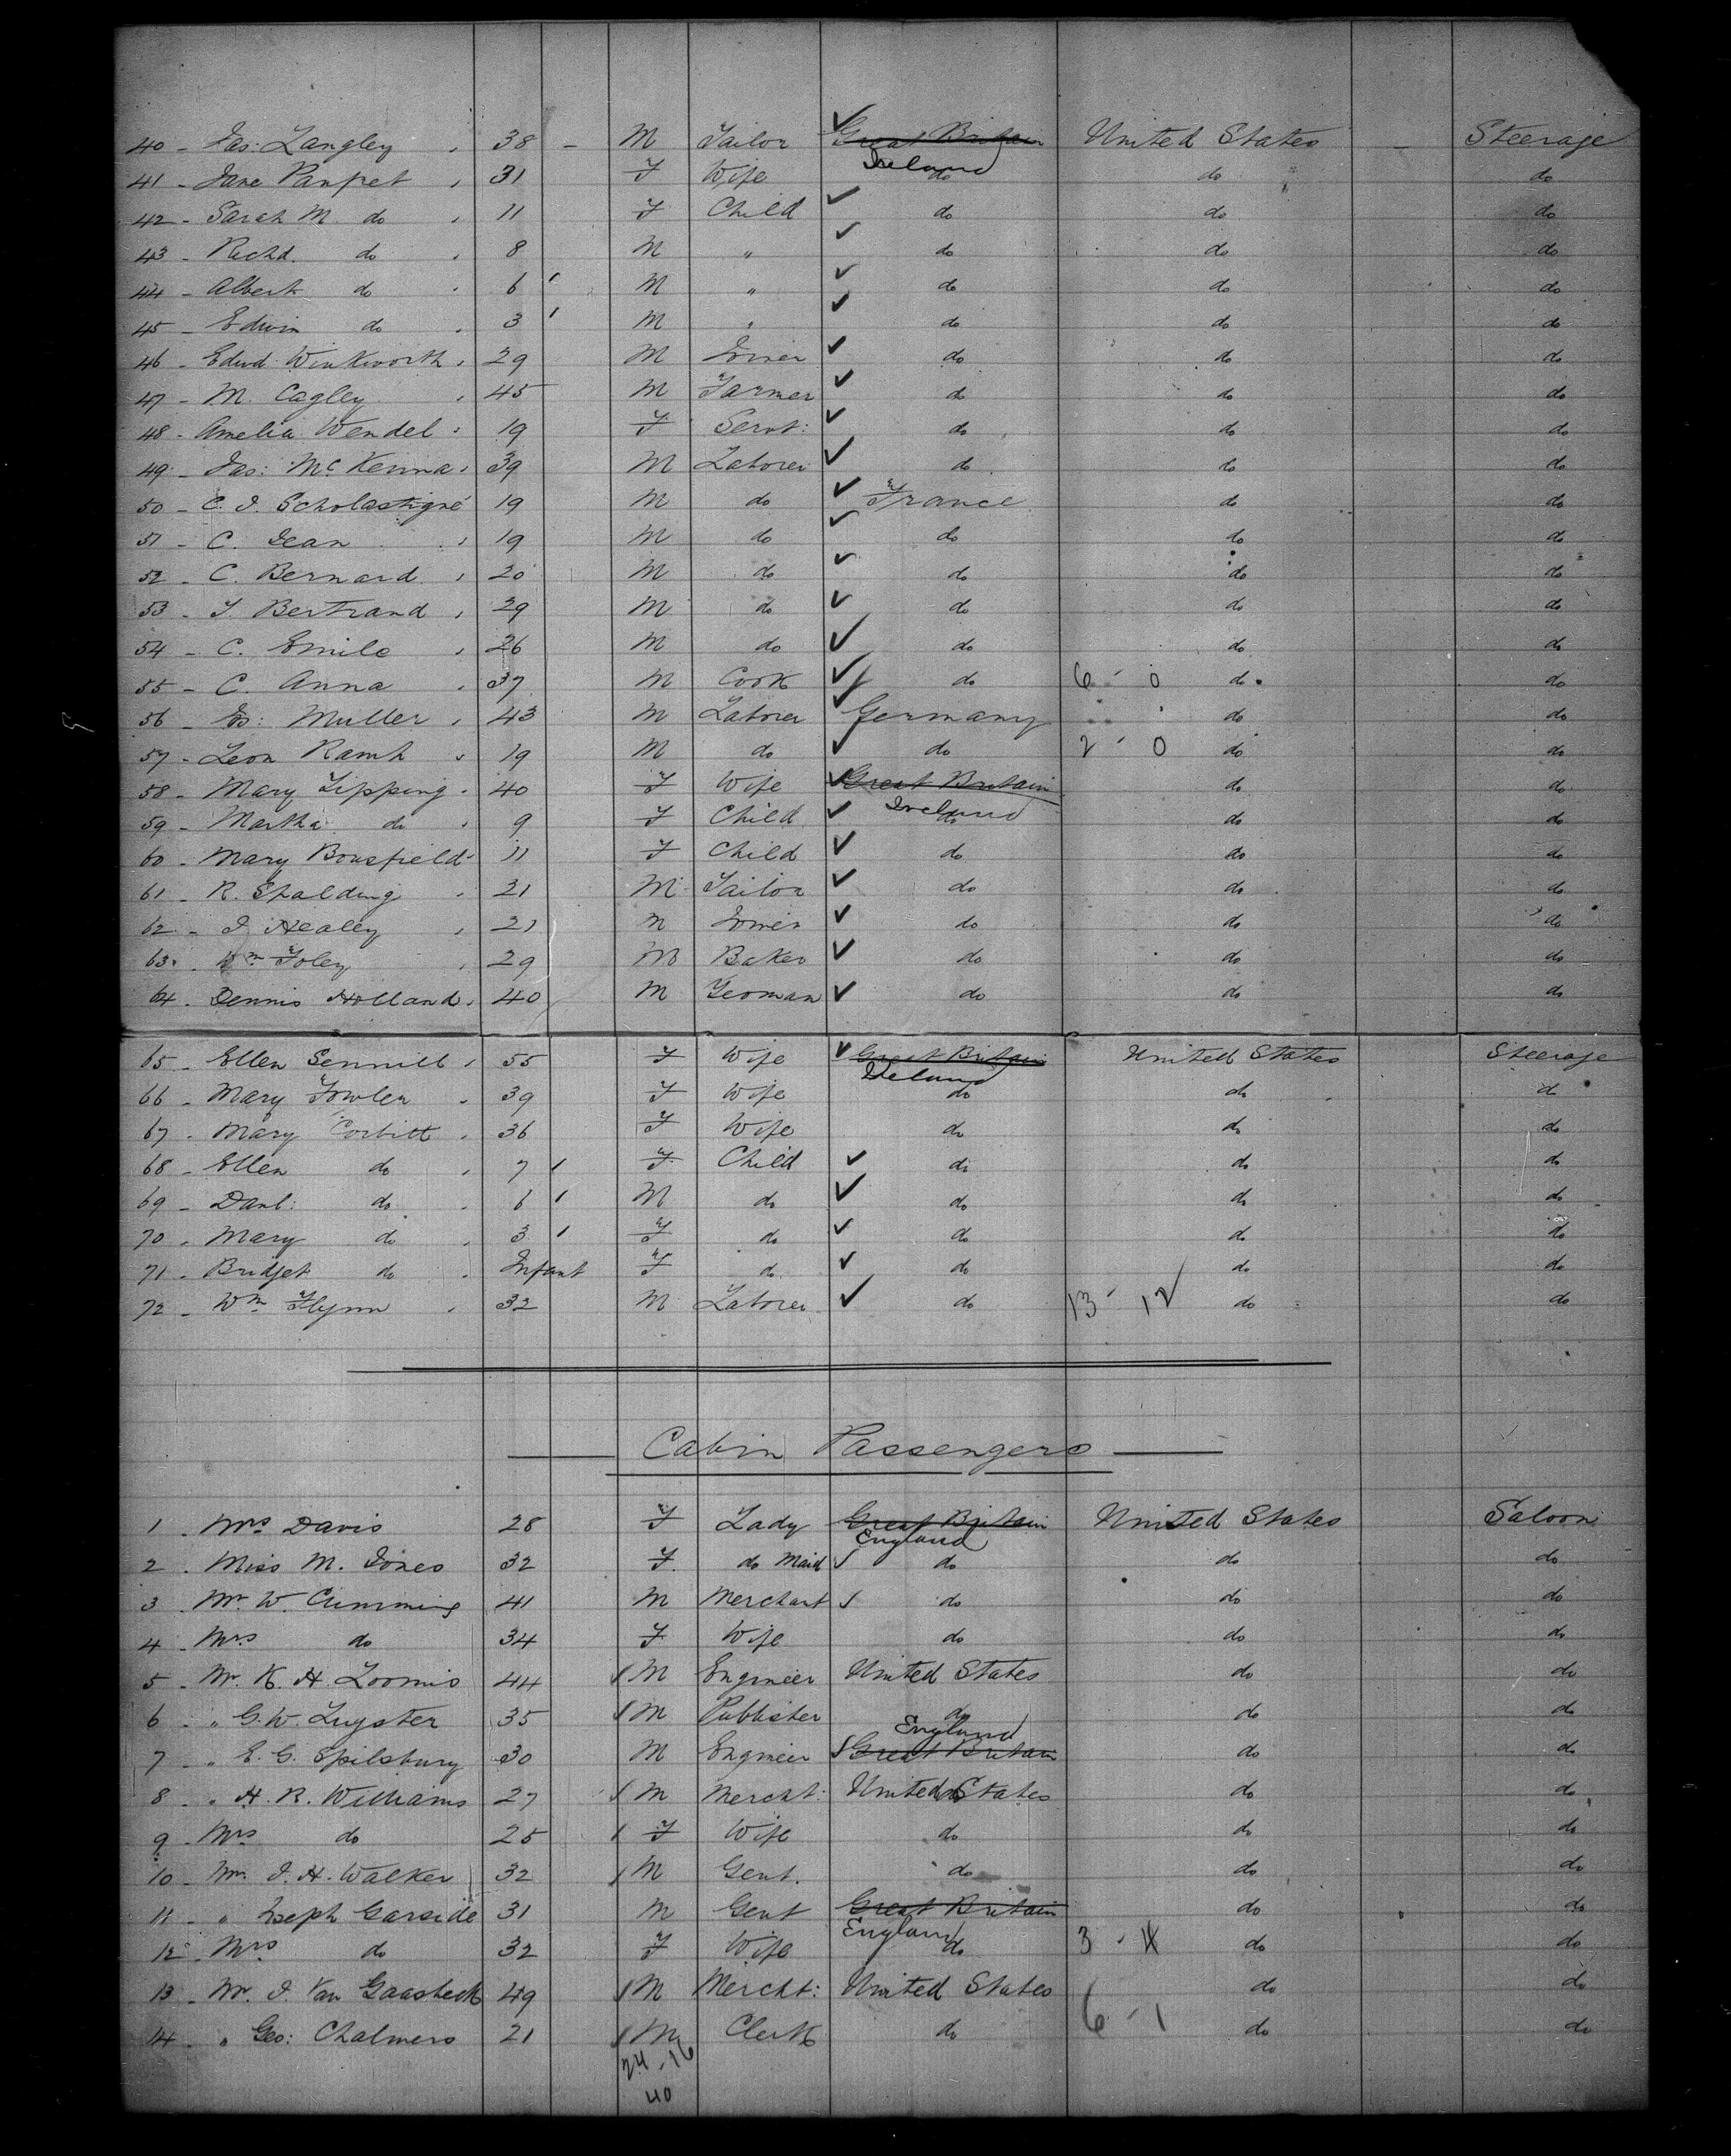 40 - Jas: Langley 38 - M Tailor Great Britain United States - Steerage
Ireland
41 - Jane Panpet 31 F Wife do do do
42 - Sarah M. do 11 F Child do do do
43 - Richd. do 8 M " do do do
44 - Albert do 6 M " do do do
45 - Edwin do 3 M " do do do
46 - Edwd Winkworth 29 M Joiner do do do
47 - M. Cagley 45 M Farmer do do do
48 - Amelia Wendel 19 F Servt: do do do
49 - Jas: McKenna 39 M Laborer do do do
50 - C. J. Scholastigné 19 M do France do do
51 - C. Jean 19 M do do do do
52 - C. Bernard 20 M do do do do
53 - J. Bertrand 29 M do do do do
54 - C. Emile 26 M do do do do
55 - C. Anna 37 M Cook do 6 - 0 do do
56 - Muller 43 M Laborer Germany do do
57 - Leon Ramh 19 M do do 2 - 0 do do
58 - Mary Tipping 40 F Wife Great Britain do do
Ireland
59 - Martha do 9 F Child do do do
60 - Mary Bousfield 11 F Child do do do
61 - R. Spalding 21 M Tailor do do do
62 - J. Healey 21 M Joiner do do do
63 - Wm Foley 29 M Baker do do do
64 - Dennis Holland 40 M Yeoman do do do
65 - Ellen 55 F Wife Great Britain United States Steerage
Ireland
66 - Mary Fowler 39 F Wife do do do
67 - Mary Corbitt 36 F Wife do do do
68 - Ellen do 7 F Child do do do
69 - Danl: do 6 M do do do do
70 - Mary do 3 F do do do do
71 - Bridget do Infant F do do do do
72 - Wm Flynn 32 M Laborer do 13 - 12 do do
Cabin Passengers
1 - Mrs Davis 28 F Lady Great Britain United States Saloon
England
2 - Miss M. Jones 32 F do Maid do do do
3 - Mr. W. Cumming 41 M Merchant do do do
4 - Mrs do 34 F Wife do do do
5 - Mr. K. H. Loomis 44 M Engineer United States do do
6 - " G. W. Luyster 35 M Publisher do do do
England
7 - " E. G. Spilsbury 30 M Engineer Great Britain do do
8 - " H. R. Williams 27 M Mercht: United States do do
9 - Mrs do 25 F Wife do do do
10 - Mr. J. H. Walker 32 M Gent. do do do
11 - " Joseph Garside 31 M Gent Great Britain do do
England
12 - Mrs do 32 F Wife do 3 - 4 do do
13 - Mr. J. Van Gaasbeek 49 M Mercht: United States do do
14 - " Geo: Chalmers 21 M Clerk do 6 - 1 do do
24 - 16
40